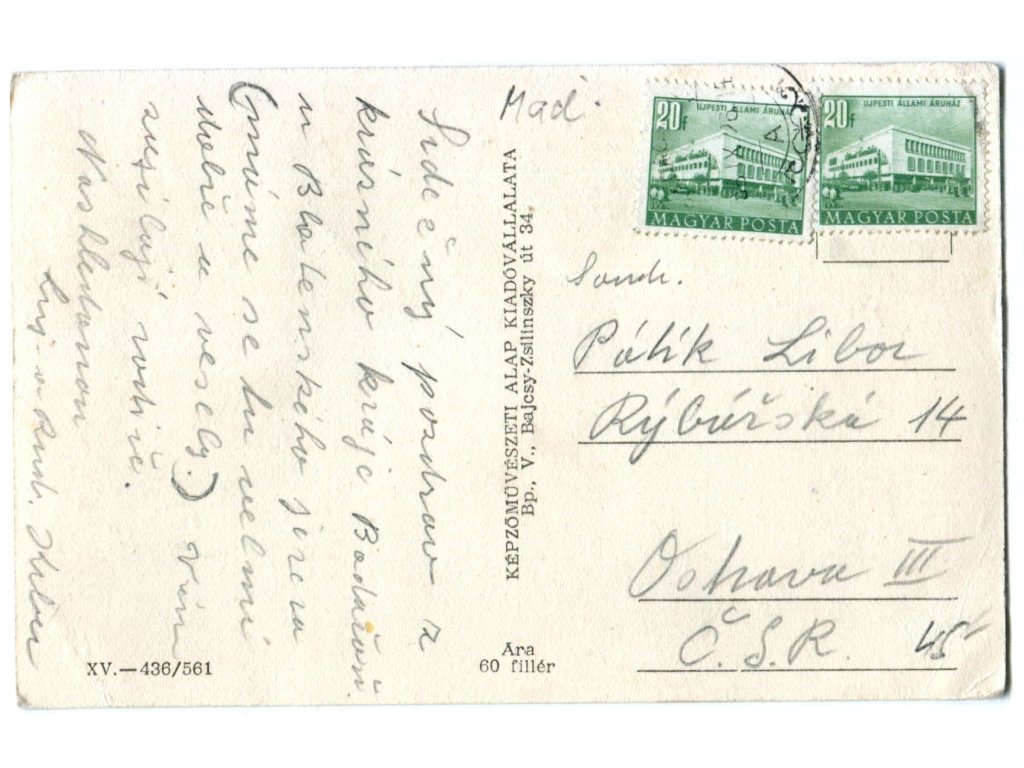 Mad.
Srdečný pozdrav z
krásného kraje Badačoň.
u Blatenského jezera
(míníme se tu velmi
dobře a vesely.) Vám
zasílají rodiče.
Nashledanou
a Rud.
KÉPZŐMŰVÉSZETI ALAP KIADÓVÁLLALATA
Bp., V., Bajcsy-Zsilinszky út 34.
Ára
60 fillér
XV.—436/561
20f
UJPESTI ÁLLAMI ÁRUHÁZ
MAGYAR POSTA
20f
UJPESTI ÁLLAMI ÁRUHÁZ
MAGYAR POSTA
Soudr.
Pálik Libor
Rýbářská 14
Ostrava III
Č.S.R. 45